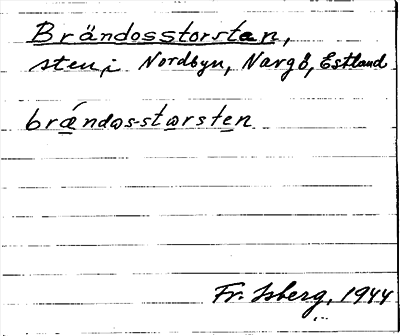 Brändosstorsten,
sten i Nordbyn, Nargö, Estland
brǽndos-storsten
Fr. Isberg, 1944